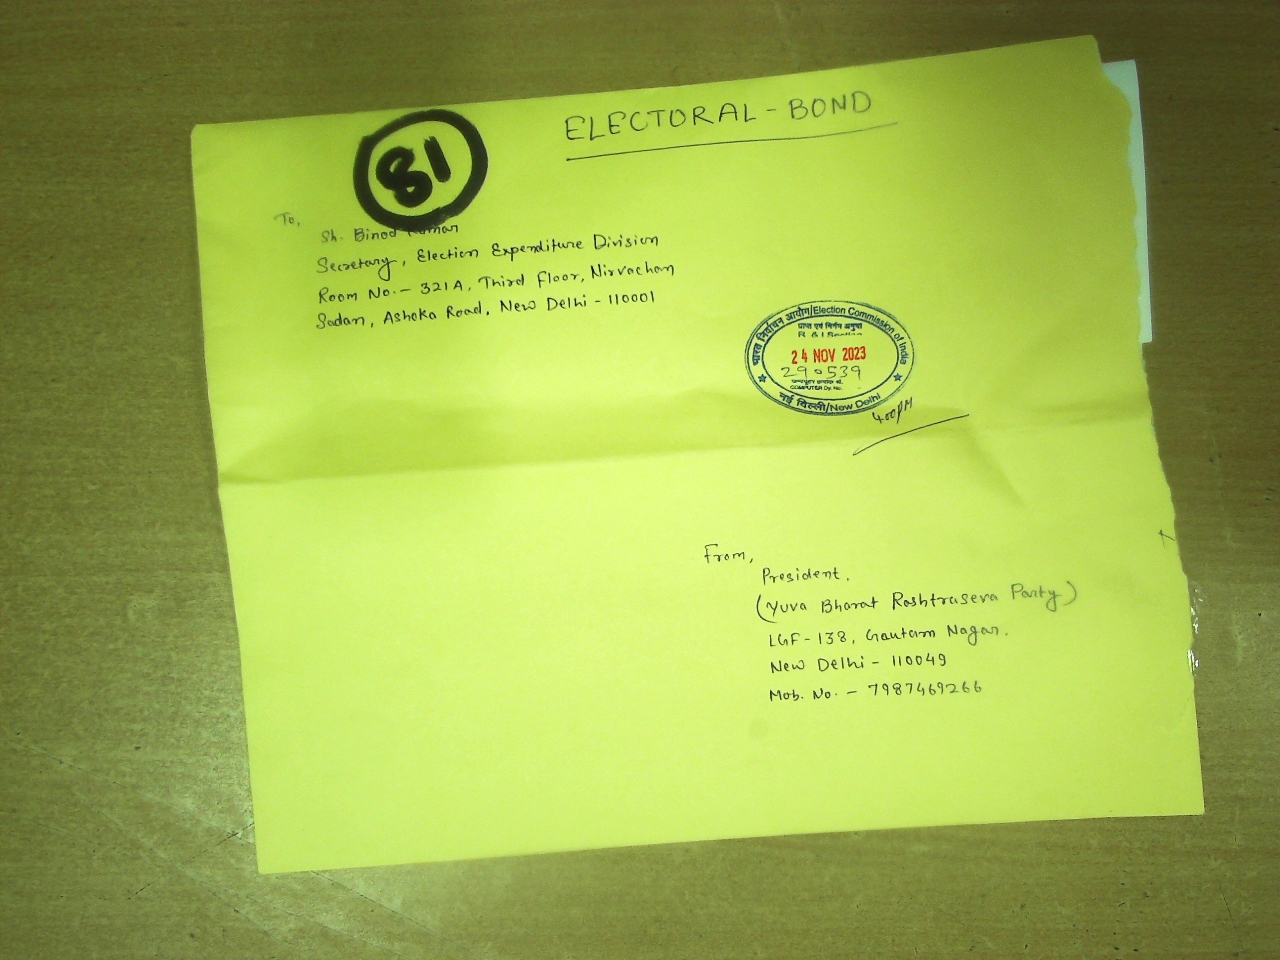 ELECTORAL - BOND
81
To,
Sh. Binod Kumar
Secretary, Election Expenditure Division
Room No. - 321A, Third Floor, Nirvachan
Sadan, Ashoka Road, New Delhi - 110001
भारत निर्वाचन आयोग/Election Commission of India
प्राप्त एवं निर्गम अनुभाग
R & I Section
24 NOV 2023
290539
COMPUTER Dy. No.
नई दिल्ली/New Delhi
4:00PM
From,
President.
(Yuva Bharat Rashtraseva Party)
LGF - 138, Gautam Nagar.
New Delhi - 110049
Mob. No. - 7987469266